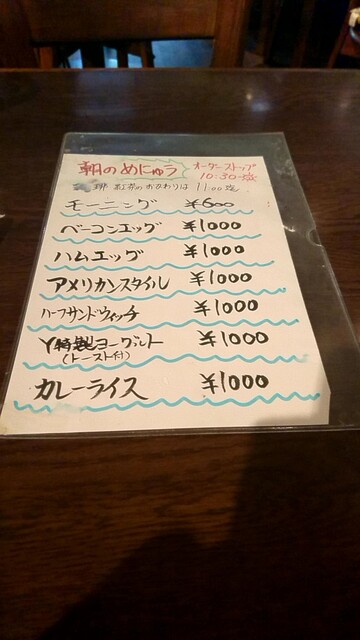 朝のめにゅう オーダーストップ
10:30迄
珈 紅茶のおかわりは 11:00迄
モーニング ¥600
ベーコンエッグ ¥1000
ハムエッグ ¥1000
アメリカンスタイル ¥1000
ハーフサンドウィッチ ¥1000
Y特製ヨーグルト ¥1000
(トースト付)
カレーライス ¥1000